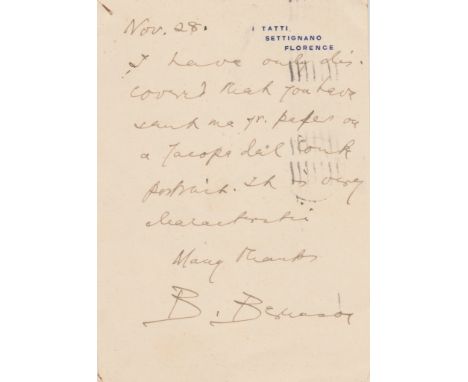 Nov. 28.
I TATTI
SETTIGNANO
FLORENCE
I have only dis-
covered that you have
sent me yr. paper on
a Jacopo del
portrait. It is very
characteristic
Many thanks
B. Berenson